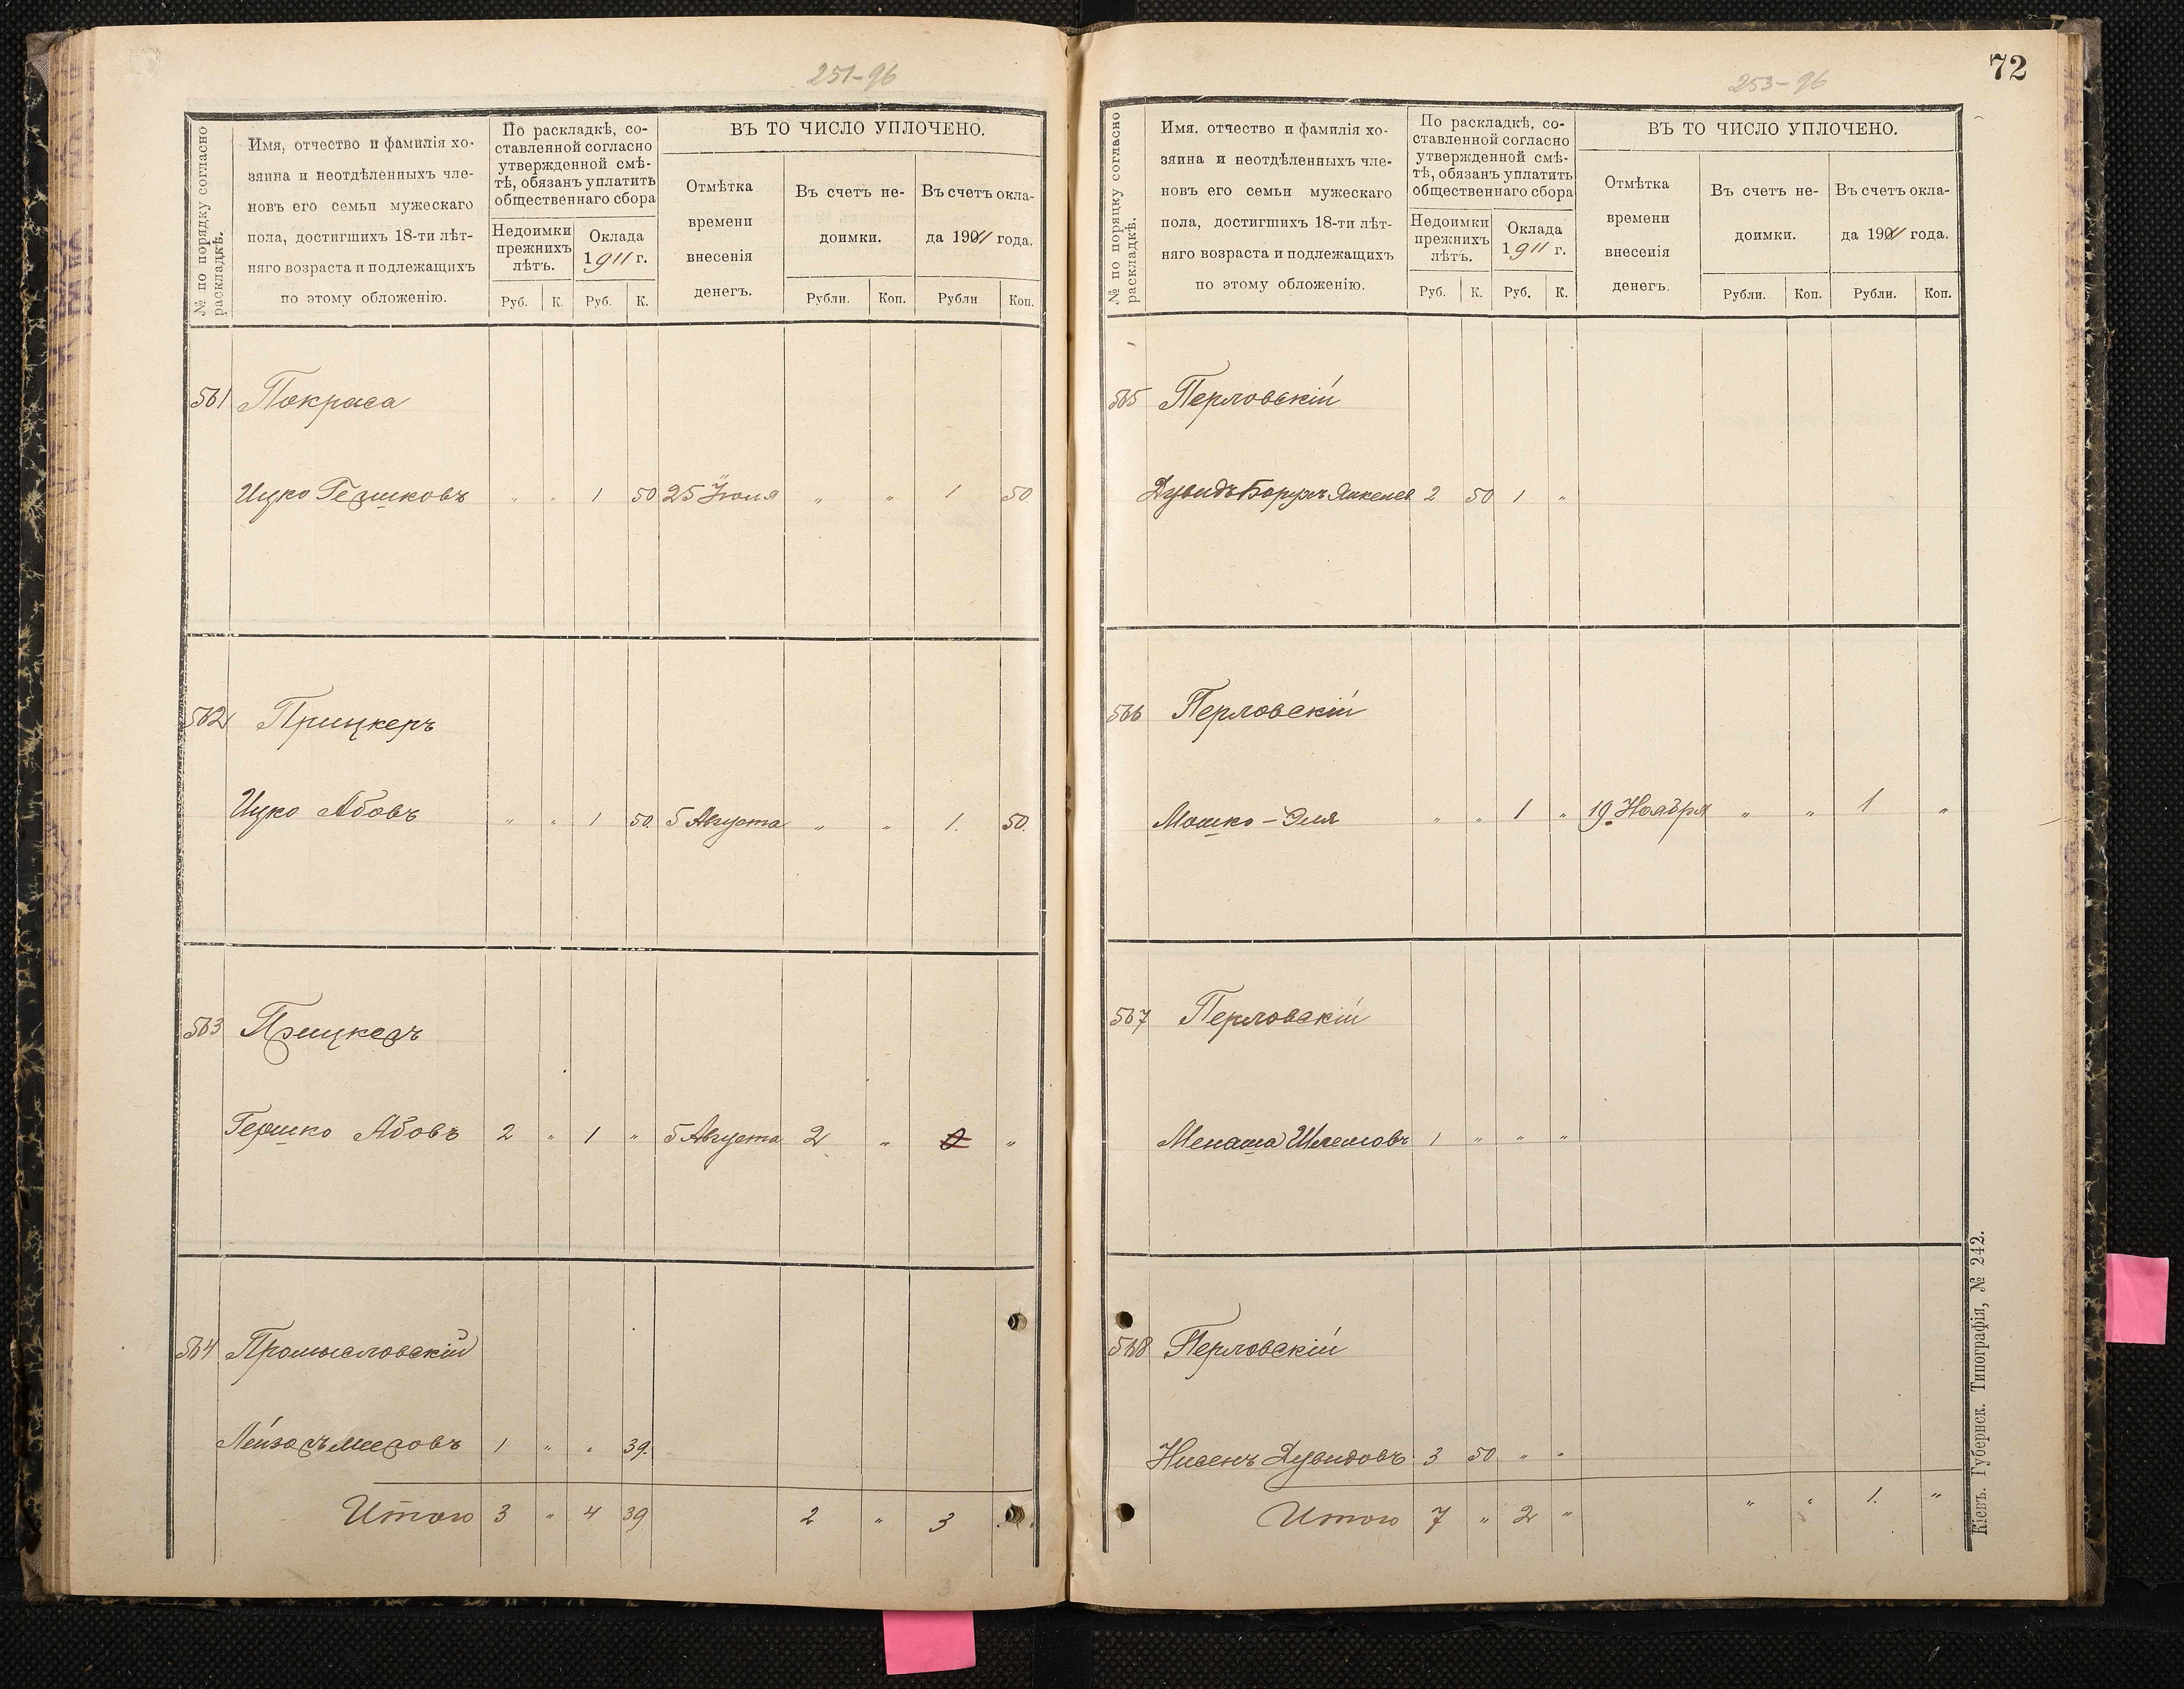 251-96
№ по порядку согласно раскладкѣ.
Имя, отчество и фамилія хо-
зяина и неотдѣленныхъ чле-
новъ его семьи мужескаго
пола, достигшихъ 18-ти лѣт-
няго возраста и подлежащихъ
по этому обложенію.
По раскладкѣ, со-
ставленной согласно
утвержденной смѣ-
тѣ, обязанъ уплатить
общественнаго сбора
Недоимки
прежнихъ
лѣтъ.
Оклада
1911 г.
Руб. К. Руб. К.
ВЪ ТО ЧИСЛО УПЛОЧЕНО.
Отмѣтка
времени
внесенія
денегъ.
Въ счетъ не-
доимки.
Въ счетъ окла-
да 1911 года.
Рубли. Коп. Рубли Коп.
561 Покраса
Ицко Гершковъ " " 1 50 25 Іюля " " 1 50
562 Прицкеръ
Ицко Абовъ " " 1 50. 5 Августа " " 1. 50.
563 Прицкеръ
Гершко Абовъ 2 " 1 " 5 Августа 2 " "
564 Промысловскій
Лейзоръ Мееровъ 1 " " 39.
Итого 3 " 4 39 2 " 3
72
253-96
№ по порядку согласно раскладкѣ.
Имя. отчество и фамилія хо-
зяина и неотдѣленныхъ чле-
новъ его семьи мужескаго
пола, достигшихъ 18-ти лѣт-
няго возраста и подлежащихъ
по этому обложенію.
По раскладкѣ, со-
ставленной согласно
утвержденной смѣ-
тѣ, обязанъ уплатить
общественнаго сбора
Недоимки
прежнихъ
лѣтъ.
Оклада
1911 г.
Руб. К. Руб. К.
ВЪ ТО ЧИСЛО УПЛОЧЕНО.
Отмѣтка
времени
внесенія
денегъ.
Въ счетъ не-
доимки.
Въ счетъ окла-
да 1911 года.
Рубли. Коп. Рубли. Коп.
565 Перловскій
Дувидъ Борухъ Янкелев 2 50 1 "
566 Перловскій
Мошко - Эля " " 1 " 19 Ноября " " 1 "
567 Перловскій
Менаша Шлемовъ 1 " " "
568 Перловскій
Нисенъ Дувидовъ 3 50 " "
Итого 7 " 2 " " " 1. "
Кіевъ. Губернск. Типографія, № 242.